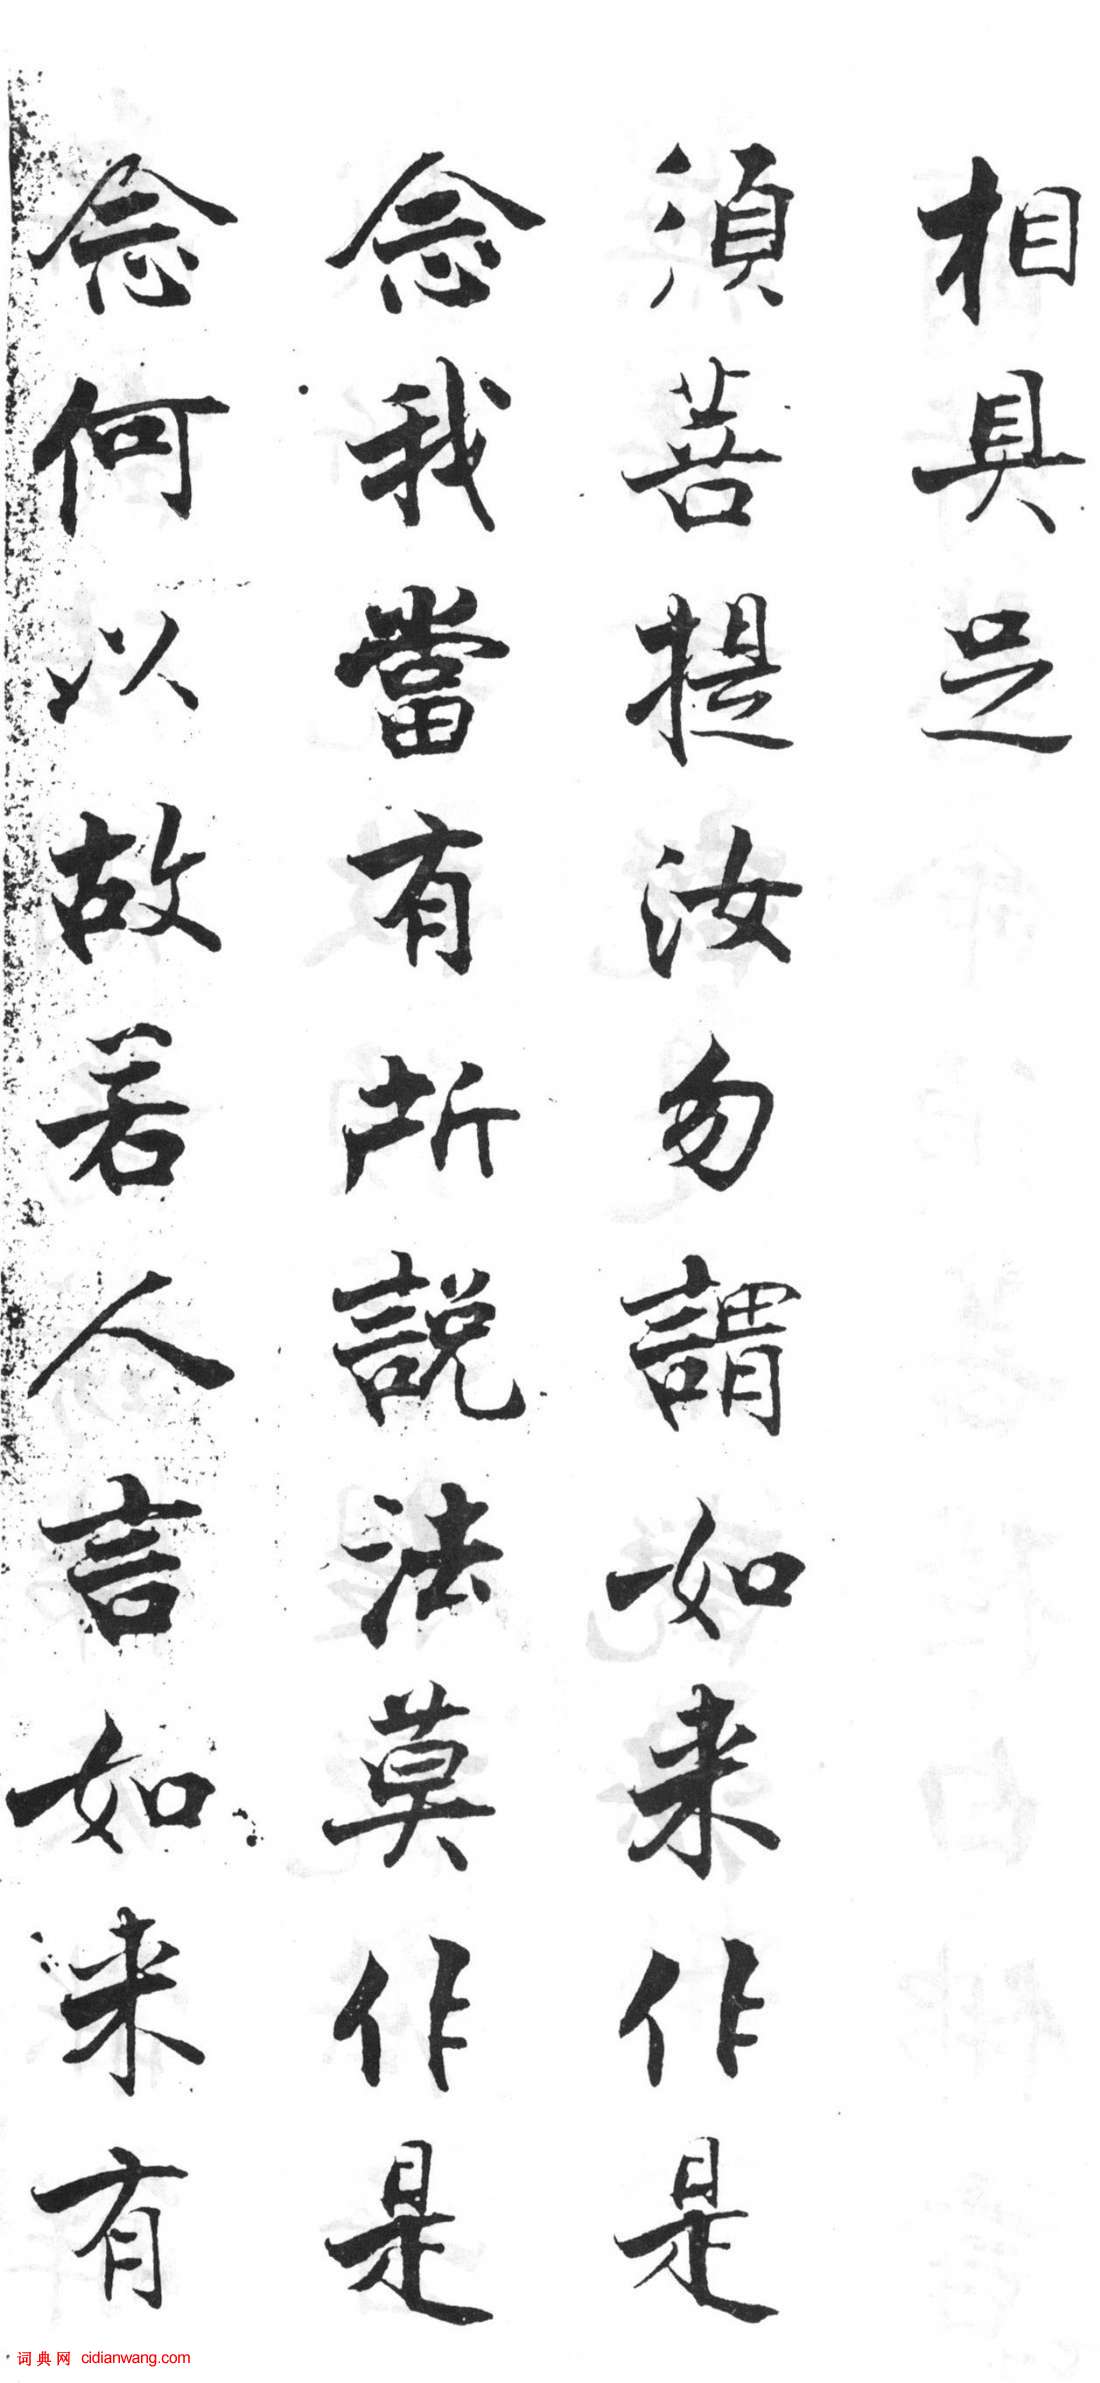 相具足
須菩提汝勿謂如来作是
念我當有所說法莫作是
念何以故若人言如来有
词典网 cidianwang.com